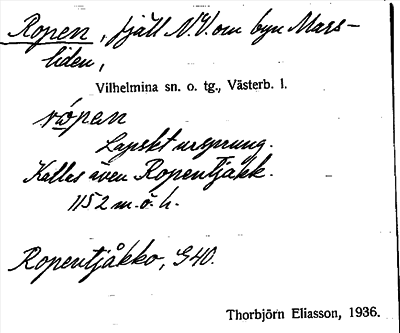 Ropen, fjäll N.V. om byn Mars-
liden,
Vilhelmina sn. o. tg., Västerb. l.
rópen
Lapskt ursprung.
Kallas även Ropentjåkk.
1152 m. ö. h.
Ropentjåkko, G40.
Thorbjörn Eliasson, 1936.